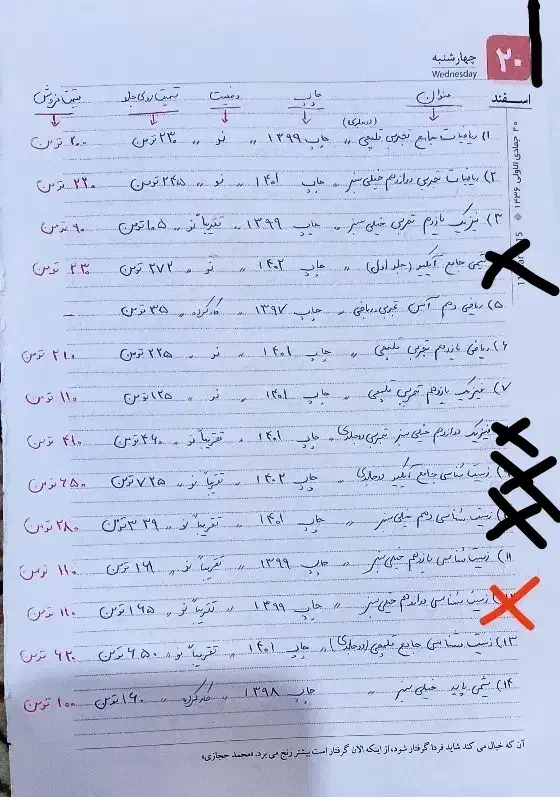 ۲۰
چهارشنبه
Wednesday
اسفند
۲۰ جمادی الاولی ۱۴۳۶
عنوان چاپ وضعیت قیمت روی جلد قیمت فروش
۱) ریاضیات جامع تجربی (دوجلدی) " چاپ ۱۳۹۹ " نو " ۲۳۰ تومن ۲۰۰ تومن
۲) ریاضیات تجربی دوازدهم خیلی سبز " چاپ ۱۴۰۱ " نو " ۲۴۵ تومن ۲۲۰ تومن
۳) فیزیک یازدهم تجربی خیلی سبز " چاپ ۱۳۹۹ " تقریباً نو " ۱۰۵ تومن ۹۰ تومن
شیمی جامع آیکیو (جلد اول) " چاپ ۱۴۰۲ " نو " ۲۷۲ تومن ۲۳۰ تومن
۵) ریاضی دهم تجربی و ریاضی " چاپ ۱۳۹۷ " کارکرده " ۳۵ تومن -
۶) ریاضی یازدهم تجربی " چاپ ۱۴۰۱ " نو " ۲۲۵ تومن ۲۱۰ تومن
۷) فیزیک یازدهم تجربی " چاپ ۱۴۰۱ " نو " ۱۲۵ تومن ۱۱۰ تومن
فیزیک دوازدهم خیلی سبز تجربی دوجلدی " چاپ ۱۴۰۱ " تقریباً نو " ۴۶۰ تومن ۴۱۰ تومن
زیست شناسی جامع آیکیو دوجلدی " چاپ ۱۴۰۲ " تقریباً نو " ۷۲۵ تومن ۶۵۰ تومن
زیست شناسی دهم خیلی سبز " چاپ ۱۴۰۱ " تقریباً نو " ۳۳۹ تومن ۲۸۰ تومن
۱۱) زیست شناسی یازدهم خیلی سبز " چاپ ۱۳۹۹ " تقریباً نو " ۱۶۹ تومن ۱۱۰ تومن
زیست شناسی دوازدهم خیلی سبز " چاپ ۱۳۹۹ " تقریباً نو " ۱۶۵ تومن ۱۱۰ تومن
۱۳) زیست شناسی جامع (دوجلدی) " چاپ ۱۴۰۱ " تقریباً نو " ۶۵۰ تومن ۶۲۰ تومن
۱۴) شیمی پایه خیلی سبز " چاپ ۱۳۹۸ " کارکرده " ۱۶۰ تومن ۱۰۰ تومن
آن که خیال می کند شاید فردا گرفتار شود، از اینکه الان گرفتار است بیشتر رنج می برد. «محمد حجازی»